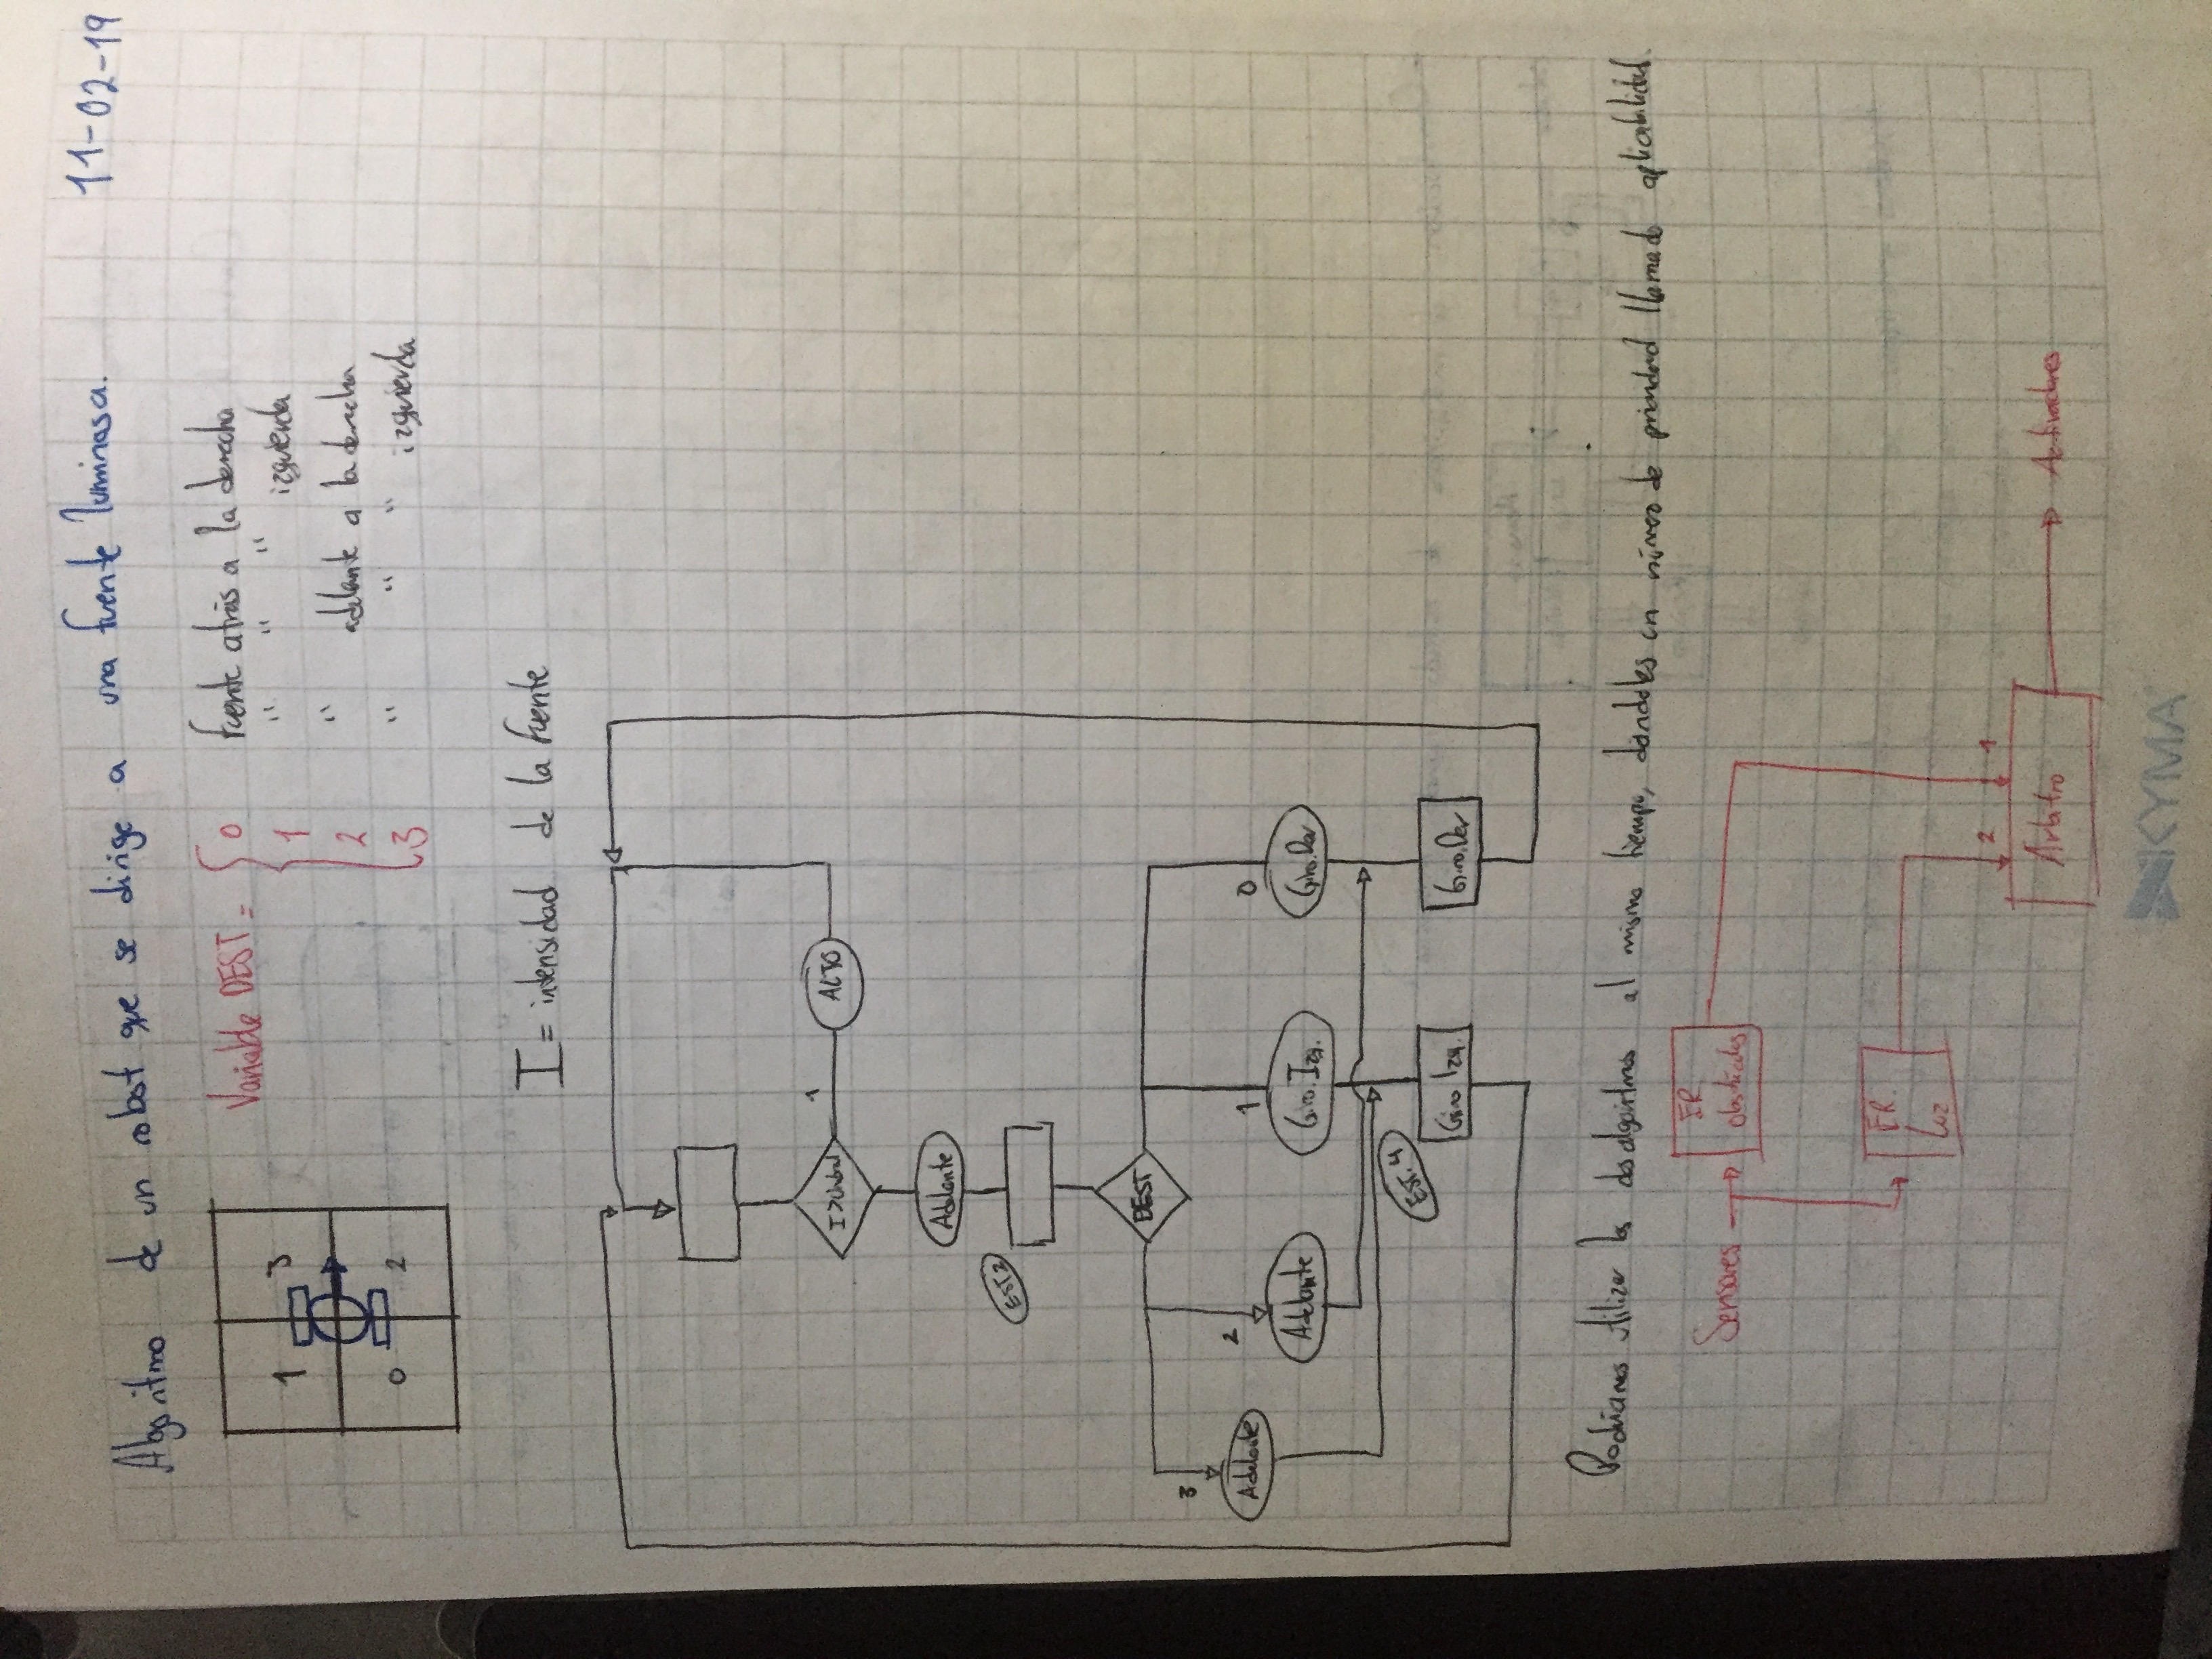 11-02-19
Algoritmo de un robot que se dirige a una fuente luminosa.
1 3
0 2
Variable DEST = 0 Fuente atrás a la derecha
1 " " " izquierda
2 " adelante a la derecha
3 " " " izquierda
I = intensidad de la fuente
I > Umbral 1 ALTO
Adelante
EST2
DEST
3 2 1 0
Adelante Adelante Giro. Izq. Giro. Der
EST. 4
Giro Izq. Giro. Der
Podríamos utilizar los dos algoritmos al mismo tiempo, dandoles un número de prioridad llamado aplicabilidad.
Sensores
obstáculos
Luz
2 1
Arbitro Activadores
KYMA